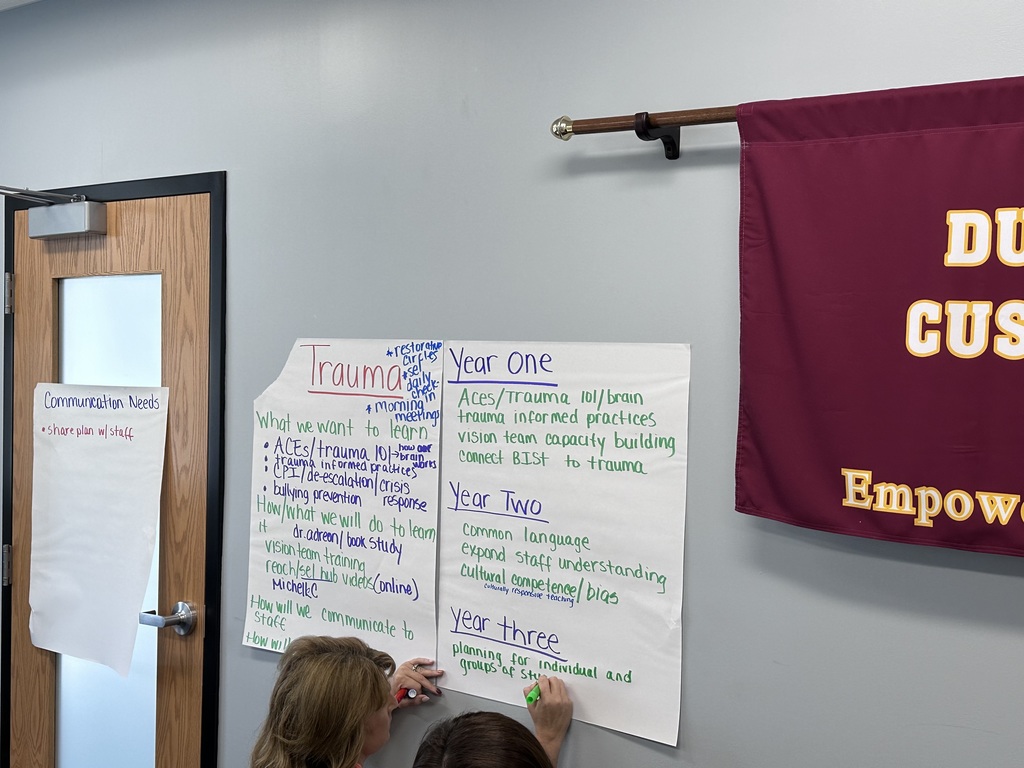 Communication Needs
• share plan w/ staff
Trauma
* restorative
circles
* sel
daily
check-
in
* morning
meetings
What we want to learn
• ACEs/trauma 101 → how our
brain
works
• trauma informed practices
• CPI/de-escalation/crisis
response
• bullying prevention
How/what we will do to learn
it
dr. adreon/book study
vision team training
reach/sel hub videos (online)
Michelle C
How will we communicate to
staff
How will
Year One
ACes/Trauma 101/brain
trauma informed practices
vision team capacity building
connect BIST to trauma
Year Two
Common language
expand staff understanding
cultural competence/bias
culturally responsive teaching
Year three
planning for individual and
groups of stu
DU
CUS
Empowe